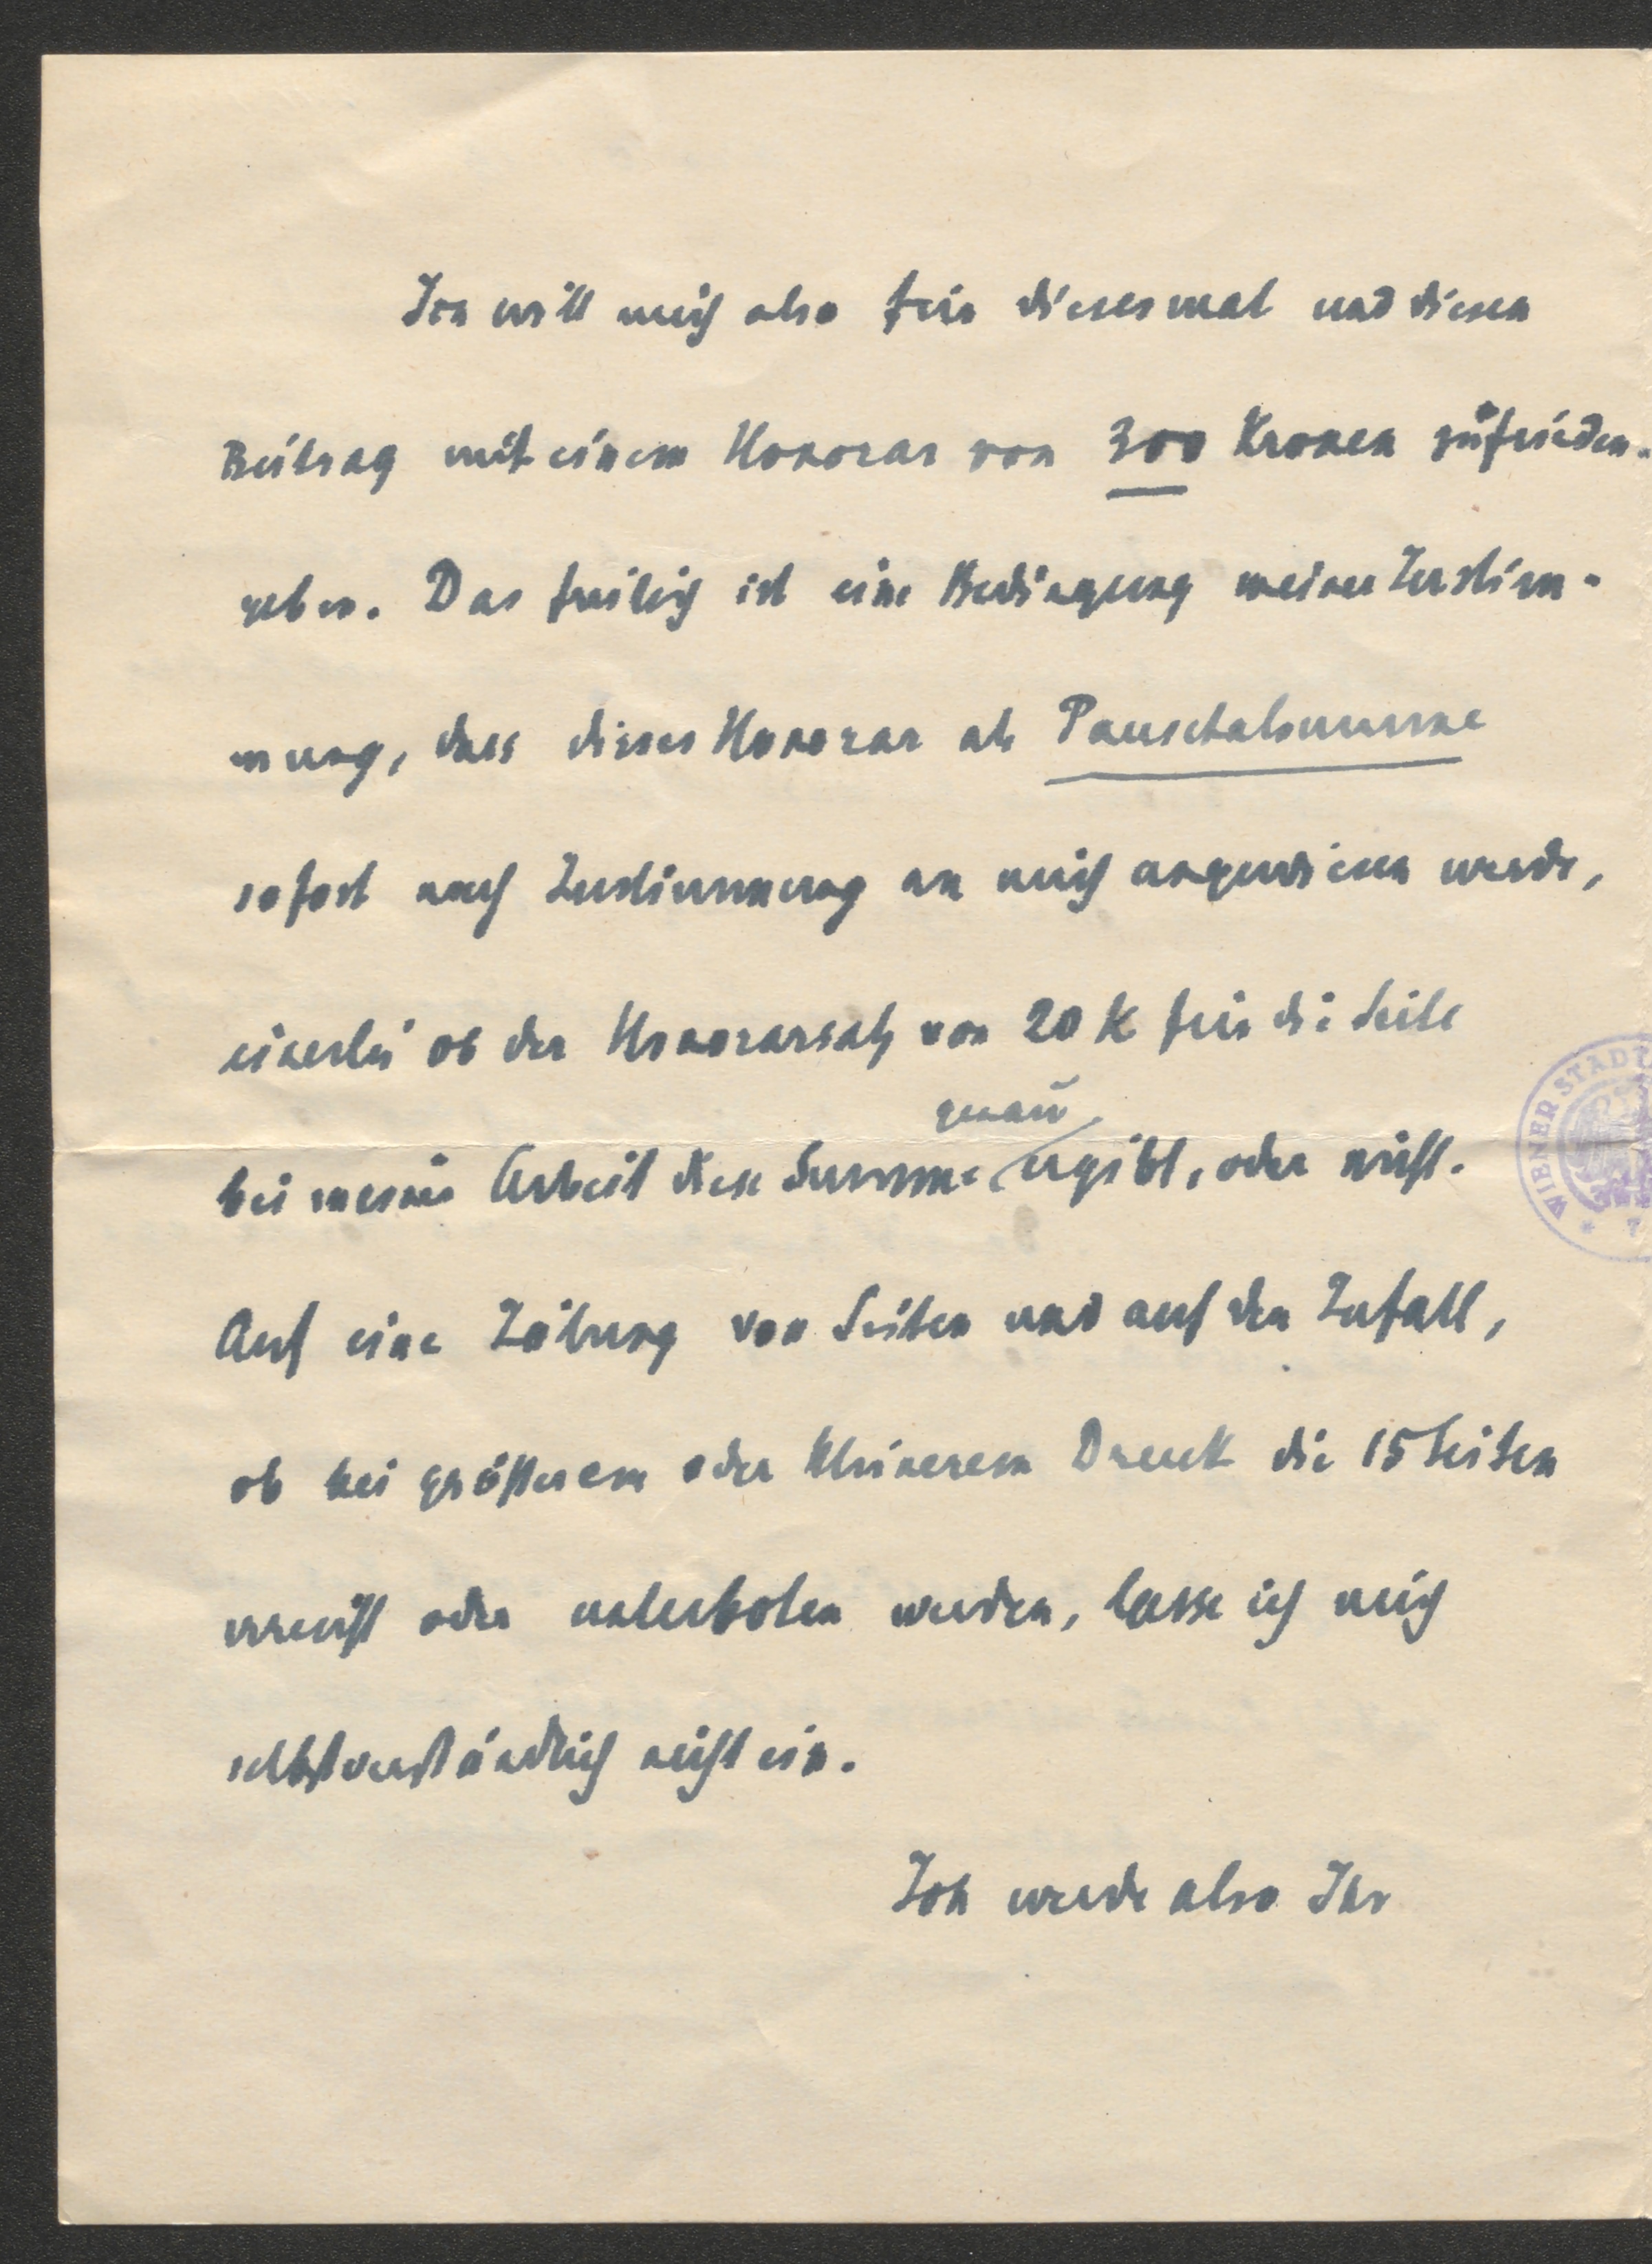 Ich will mich also für diesesmal und diesen
Beitrag mit einem Honorar von 300 Kronen zufrieden-
geben. Das freilich ist eine Bedingung meiner Zustim-
mung, dass dieses Honorar als Pauschalsumme
sofort nach Zustimmung an mich angewiesen werde,
einerlei ob der Honorarsatz von 20 K für die Seite
genau
bei meiner Arbeit diese Summe ergibt, oder nicht.
Auf eine Zälung von Seiten und auf den Zufall,
ob bei größerem oder kleinerem Druck die 15 Seiten
erreicht oder unterboten werden, lasse ich mich
selbstverständlich nicht ein.
Ich werde also Ihr
WIENER STADT